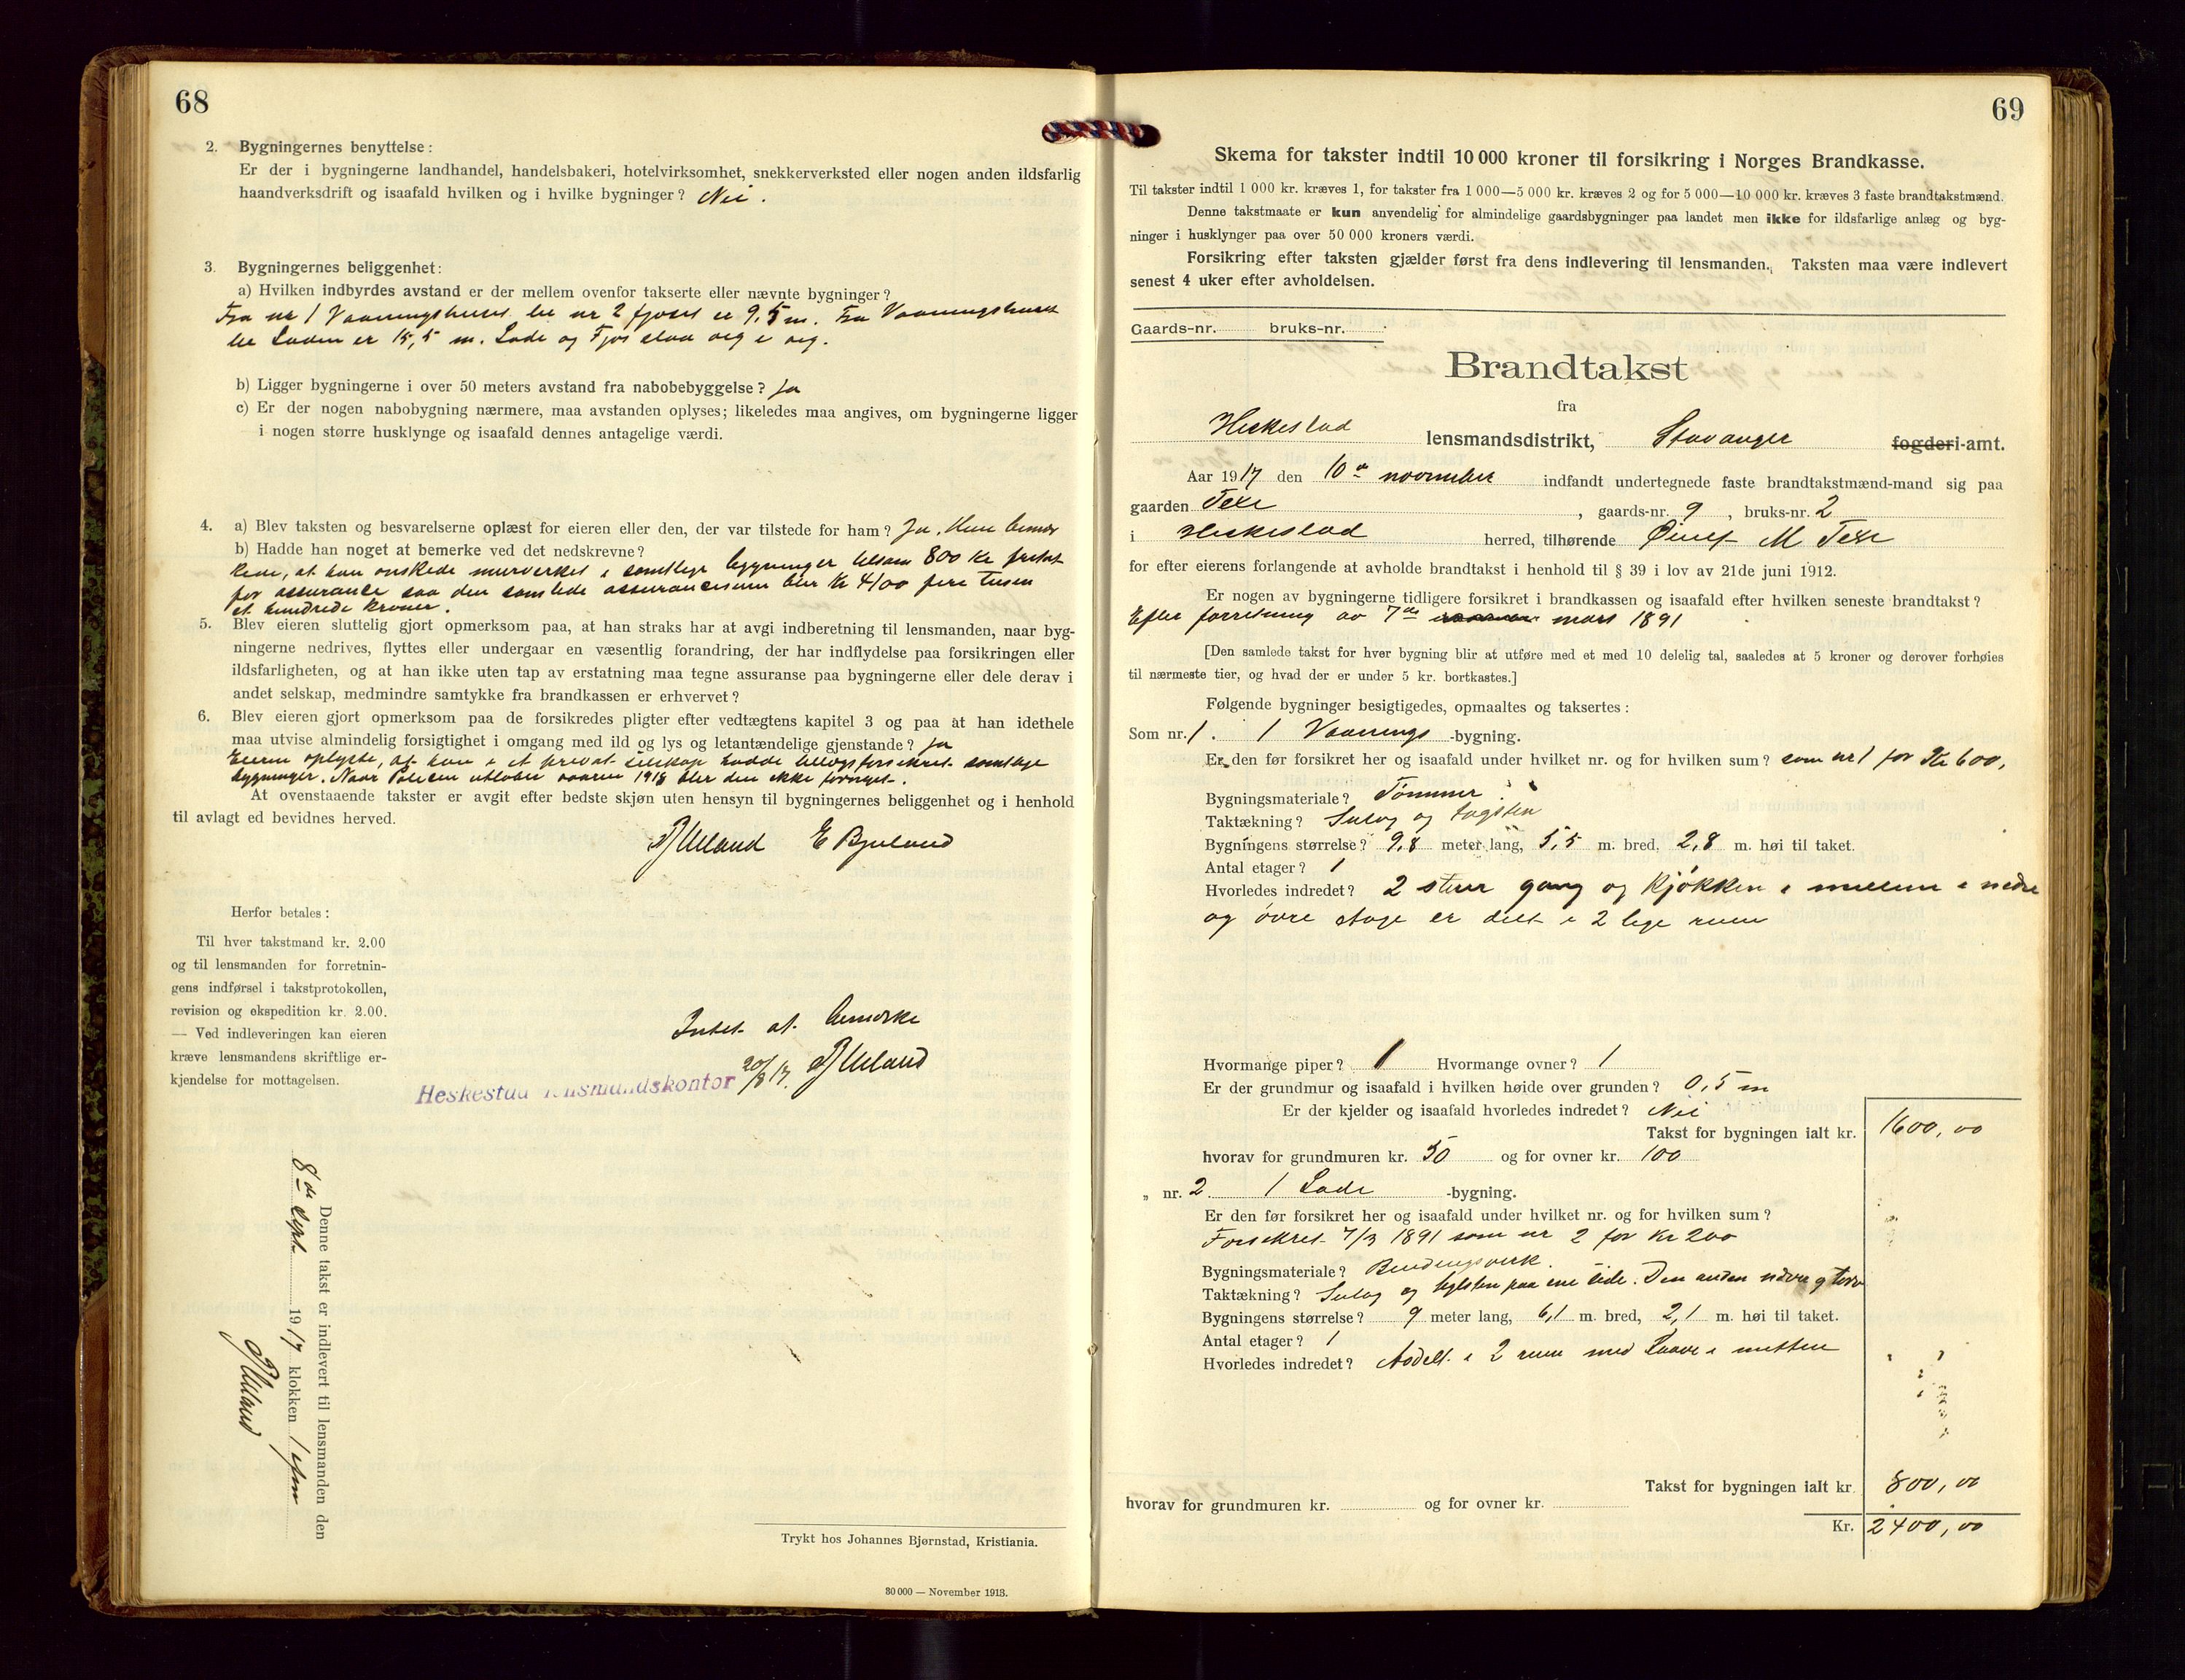 68
2. Bygningernes benyttelse:
Er der i bygningerne landhandel, handelsbakeri, hotelvirksomhet, snekkerverksted eller nogen anden ildsfarlig
haandverksdrift og isaafald hvilken og i hvilke bygninger? Nei.
3. Bygningernes beliggenhet:
a) Hvilken indbyrdes avstand er der mellem ovenfor takserte eller nævnte bygninger?
Fra nr 1 Vaaningshuset til nr 2 fjoset er 9,5 m. Fra Vaaningshuset
til Laden er 15,5 m. Lade og Fjos staa veg i veg.
b) Ligger bygningerne i over 50 meters avstand fra nabobebyggelse? Ja
c) Er der nogen nabobygning nærmere, maa avstanden oplyses; likeledes maa angives, om bygningerne ligger
i nogen større husklynge og isaafald dennes antagelige værdi.
4. a) Blev taksten og besvarelserne oplæst for eieren eller den, der var tilstede for ham? Ja. Han bemær
b) Hadde han noget at bemerke ved det nedskrevne?
kede, at han ønskede murverket i samtlige bygninger tilsam 800 kr fritat
for assurance saa den samlede assurancesum blir Kr 4100 fire tusen
et hundrede kroner.
5. Blev eieren sluttelig gjort opmerksom paa, at han straks har at avgi indberetning til lensmanden, naar byg-
ningerne nedrives, flyttes eller undergaar en væsentlig forandring, der har indflydelse paa forsikringen eller
ildsfarligheten, og at han ikke uten tap av erstatning maa tegne assuranse paa bygningerne eller dele derav i
andet selskap, medmindre samtykke fra brandkassen er erhvervet?
6. Blev eieren gjort opmerksom paa de forsikredes pligter efter vedtægtens kapitel 3 og paa at han idethele
maa utvise almindelig forsigtighet i omgang med ild og lys og letantændelige gjenstande? Ja
Eieren oplyste, at han i et privat selskap hadde tillægsforsikret samtlige
bygninger. Naar Policen utløber vaaren 1918 blir den ikke fornyet.
At ovenstaaende takster er avgit efter bedste skjøn uten hensyn til bygningernes beliggenhet og i henhold
til avlagt ed bevidnes herved.
Ueland E Bjuland
Herfor betales:
Til hver takstmand kr. 2.00
og til lensmanden for forretnin-
gens indførsel i takstprotokollen,
revision og ekspedition kr. 2.00.
— Ved indleveringen kan eieren
kræve lensmandens skriftlige er-
kjendelse for mottagelsen.
Intet at bemerke
Heskestad lensmandskontor 20/8 17. Ueland
Denne takst er indlevert til lensmanden den
8de Sept. 1917 klokken 1 efm
Ueland
Trykt hos Johannes Bjørnstad, Kristiania.
30 000 — November 1913.
69
Skema for takster indtil 10 000 kroner til forsikring i Norges Brandkasse.
Til takster indtil 1 000 kr. kræves 1, for takster fra 1 000—5 000 kr. kræves 2 og for 5 000—10 000 kr. kræves 3 faste brandtakstmænd.
Denne takstmaate er kun anvendelig for almindelige gaardsbygninger paa landet men ikke for ildsfarlige anlæg og byg-
ninger i husklynger paa over 50 000 kroners værdi.
Forsikring efter taksten gjælder først fra dens indlevering til lensmanden. Taksten maa være indlevert
senest 4 uker efter avholdelsen.
Gaards-nr. bruks-nr.
Brandtakst
fra
Heskestad lensmandsdistrikt, Stavanger fogderi-amt.
Aar 1917 den 10de november indfandt undertegnede faste brandtakstmænd-mand sig paa
gaarden Texe, gaards-nr. 9, bruks-nr. 2
i Heskestad herred, tilhørende M Texe
for efter eierens forlangende at avholde brandtakst i henhold til § 39 i lov av 21de juni 1912.
Er nogen av bygningerne tidligere forsikret i brandkassen og isaafald efter hvilken seneste brandtakst?
Efter forretning av 7de mars 1891
[Den samlede takst for hver bygning blir at utføre med et med 10 delelig tal, saaledes at 5 kroner og derover forhøies
til nærmeste tier, og hvad der er under 5 kr. bortkastes.]
Følgende bygninger besigtigedes, opmaaltes og taksertes:
Som nr. 1. 1 Vaanings-bygning.
Er den før forsikret her og isaafald under hvilket nr. og for hvilken sum? som nr 1 for Kr 600,
Bygningsmateriale? Tømmer
Taktækning? Sutag og tagsten
Bygningens størrelse? 9,8 meter lang, 5,5 m. bred, 2,8 m. høi til taket.
Antal etager? 1
Hvorledes indredet? 2 stuer gang og kjøkken i mellem i nedre
og øvre etage er delt i 2 lige rum
Hvormange piper? 1 Hvormange ovner? 1
Er der grundmur og isaafald i hvilken høide over grunden? 0,5 m
Er der kjelder og isaafald hvorledes indredet? Nei
Takst for bygningen ialt kr. 1600,00
hvorav for grundmuren kr. 50 og for ovner kr. 100
„ nr. 2 1 Lade-bygning.
Er den før forsikret her og isaafald under hvilket nr. og for hvilken sum?
Forsikret 7/3 1891 som nr 2 for Kr 200
Bygningsmateriale? Bindingsverk.
Taktækning? Sutag og teglsten paa ene side. Den anden næver og torv
Bygningens størrelse? 9 meter lang, 6,1 m. bred, 2,1 m. høi til taket.
Antal etager? 1
Hvorledes indredet? Avdelt i 2 rum med Laave i midten
Takst for bygningen ialt kr 800,00
hvorav for grundmuren kr. og for ovner kr.
Kr. 2400,00